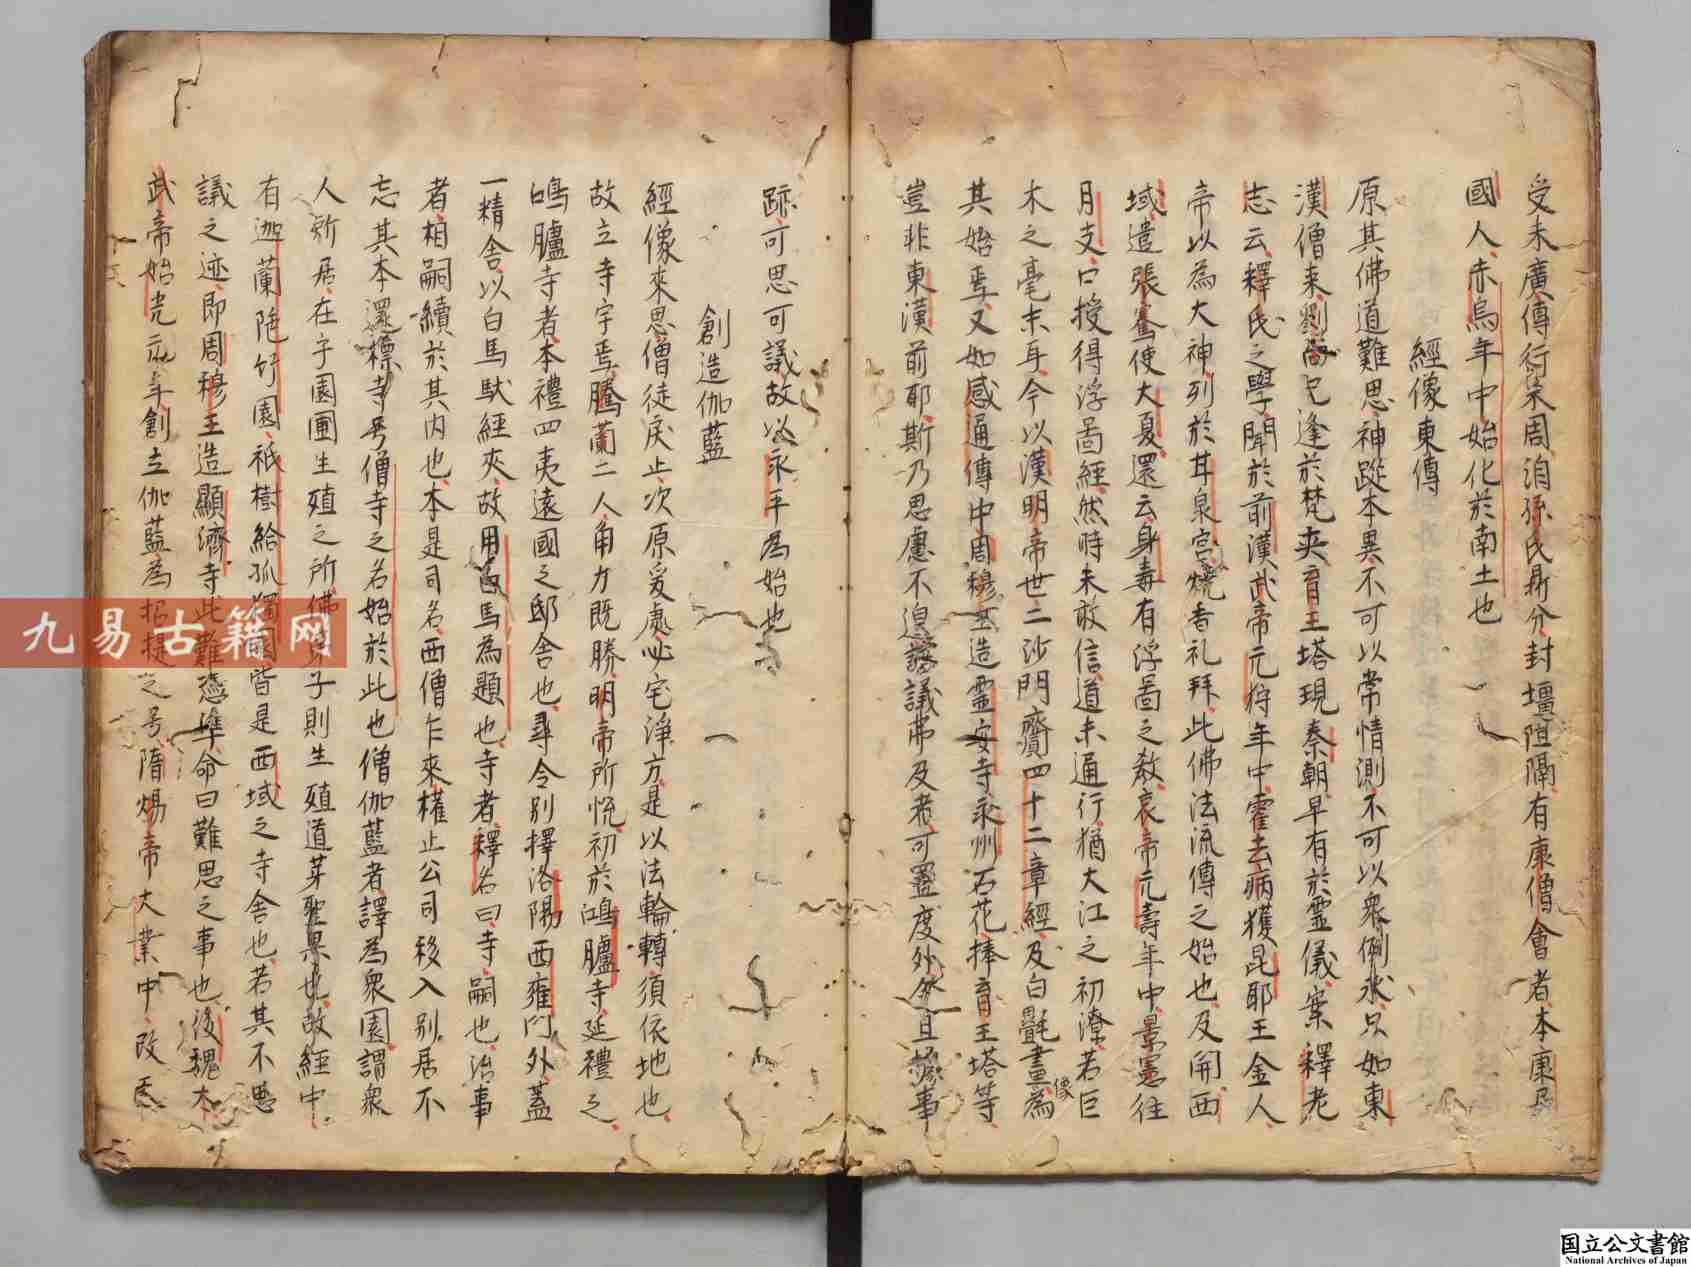 受未廣傳行宋周洎孫氏鼎分封壇阻隔有康僧會者本康居
國人赤烏年中始化於南土也
經像東傳
原其佛道難思神蹤本異不可以常情測不可以衆例求只如東
漢僧来劉向已逢於梵夾育王塔現秦朝早有於靈儀案釋老
志云釋氏之學聞於前漢武帝元狩年中霍去病獲昆耶王金人
帝以為大神列於甘泉宮燒香礼拜此佛法流傳之始也及開西
域遣張騫使大夏還云身毒有浮啚之教哀帝元壽年中景憲往
月支口授得浮啚經然時未敢信道未通行猶大江之初潦若巨
木之毫末耳今以漢明帝世二沙門齎四十二章經及白㲲畫像為
其始焉又如感通傳中周穆王造靈安寺永州石花捧育王塔等
豈非東漢前耶斯乃思慮不遑議弗及者可置度外然且據事
跡可思可議故以永平為始也
創造伽藍
經像來思僧徒戾止次原爰處必宅淨方是以法輪轉須依地也
故立寺宇焉騰蘭二人角力既勝明帝所悅初於鴻臚寺延禮之
鳴臚寺者本禮四夷遠國之邸舍也尋令別擇洛陽西雍門外蓋
一精舍以白馬馱經夾故用白馬為題也寺者釋名曰寺嗣也治事
者相嗣續於其内也本是司名西僧乍來權止公司移入別居不
忘其本還標寺号僧寺之名始於此也僧伽藍者譯為衆園謂衆
人所居在乎園圃生殖之所佛弟子則生殖道芽聖果也故經中
有迦蘭陁竹園祇樹給孤獨園皆是西域之寺舍也若其不思
議之迹即周穆王造顯濟寺此難憑準命曰難思之事也後魏太
武帝始光元年創立伽藍為招提之号隋煬帝大業中改天
九易古籍网
国立公文書館
National Archives of Japan